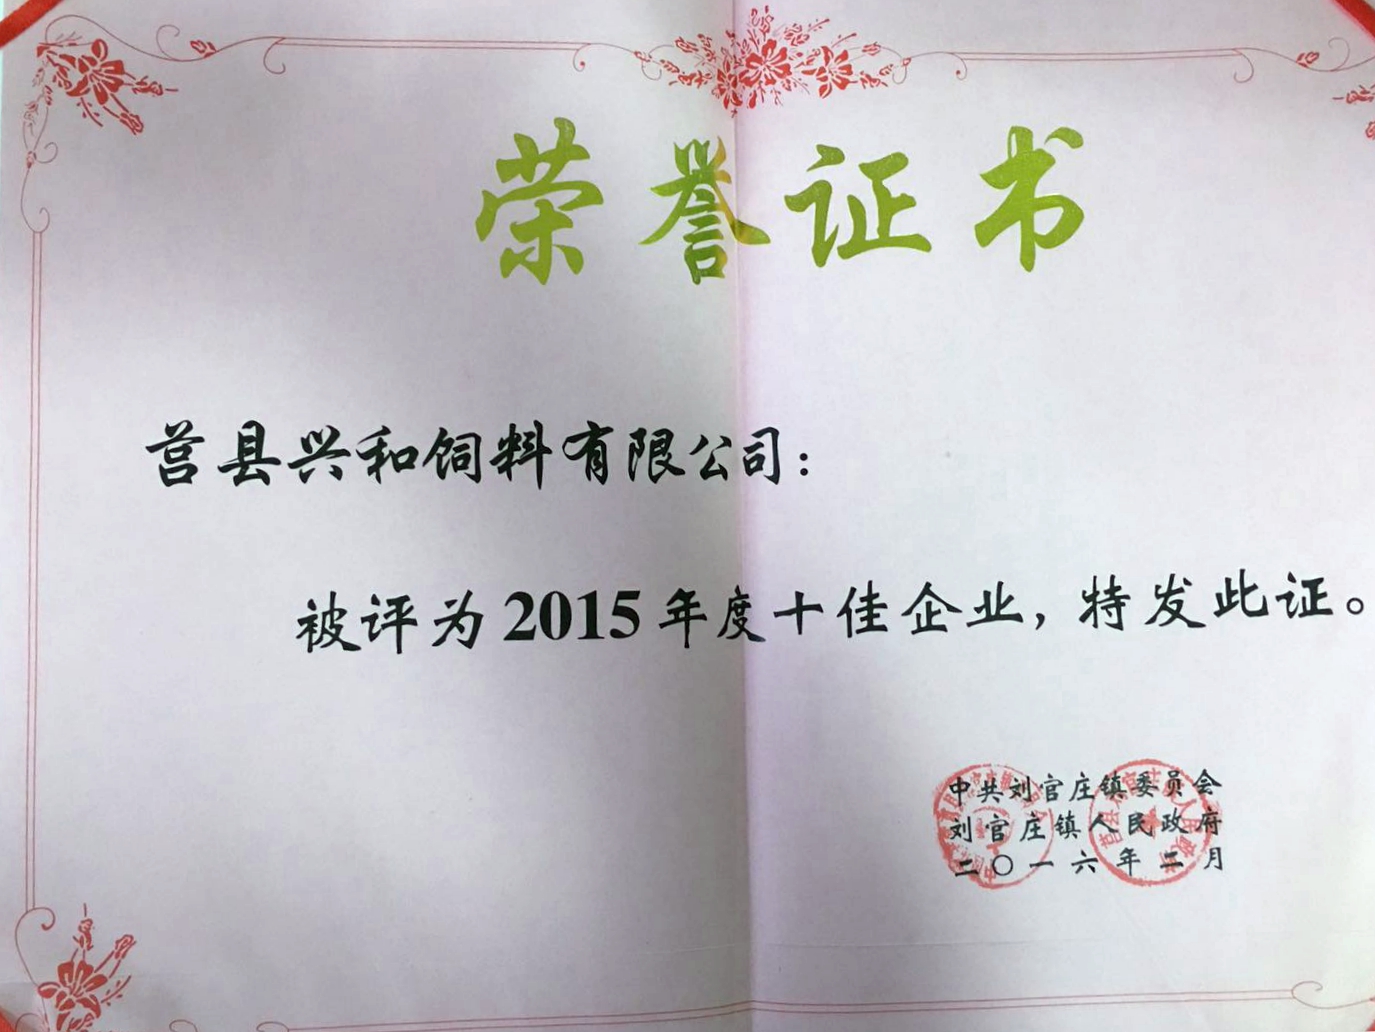 荣誉证书
莒县兴和饲料有限公司：
被评为2015年度十佳企业，特发此证。
中共刘官庄镇委员会
刘官庄镇人民政府
二〇一六年二月